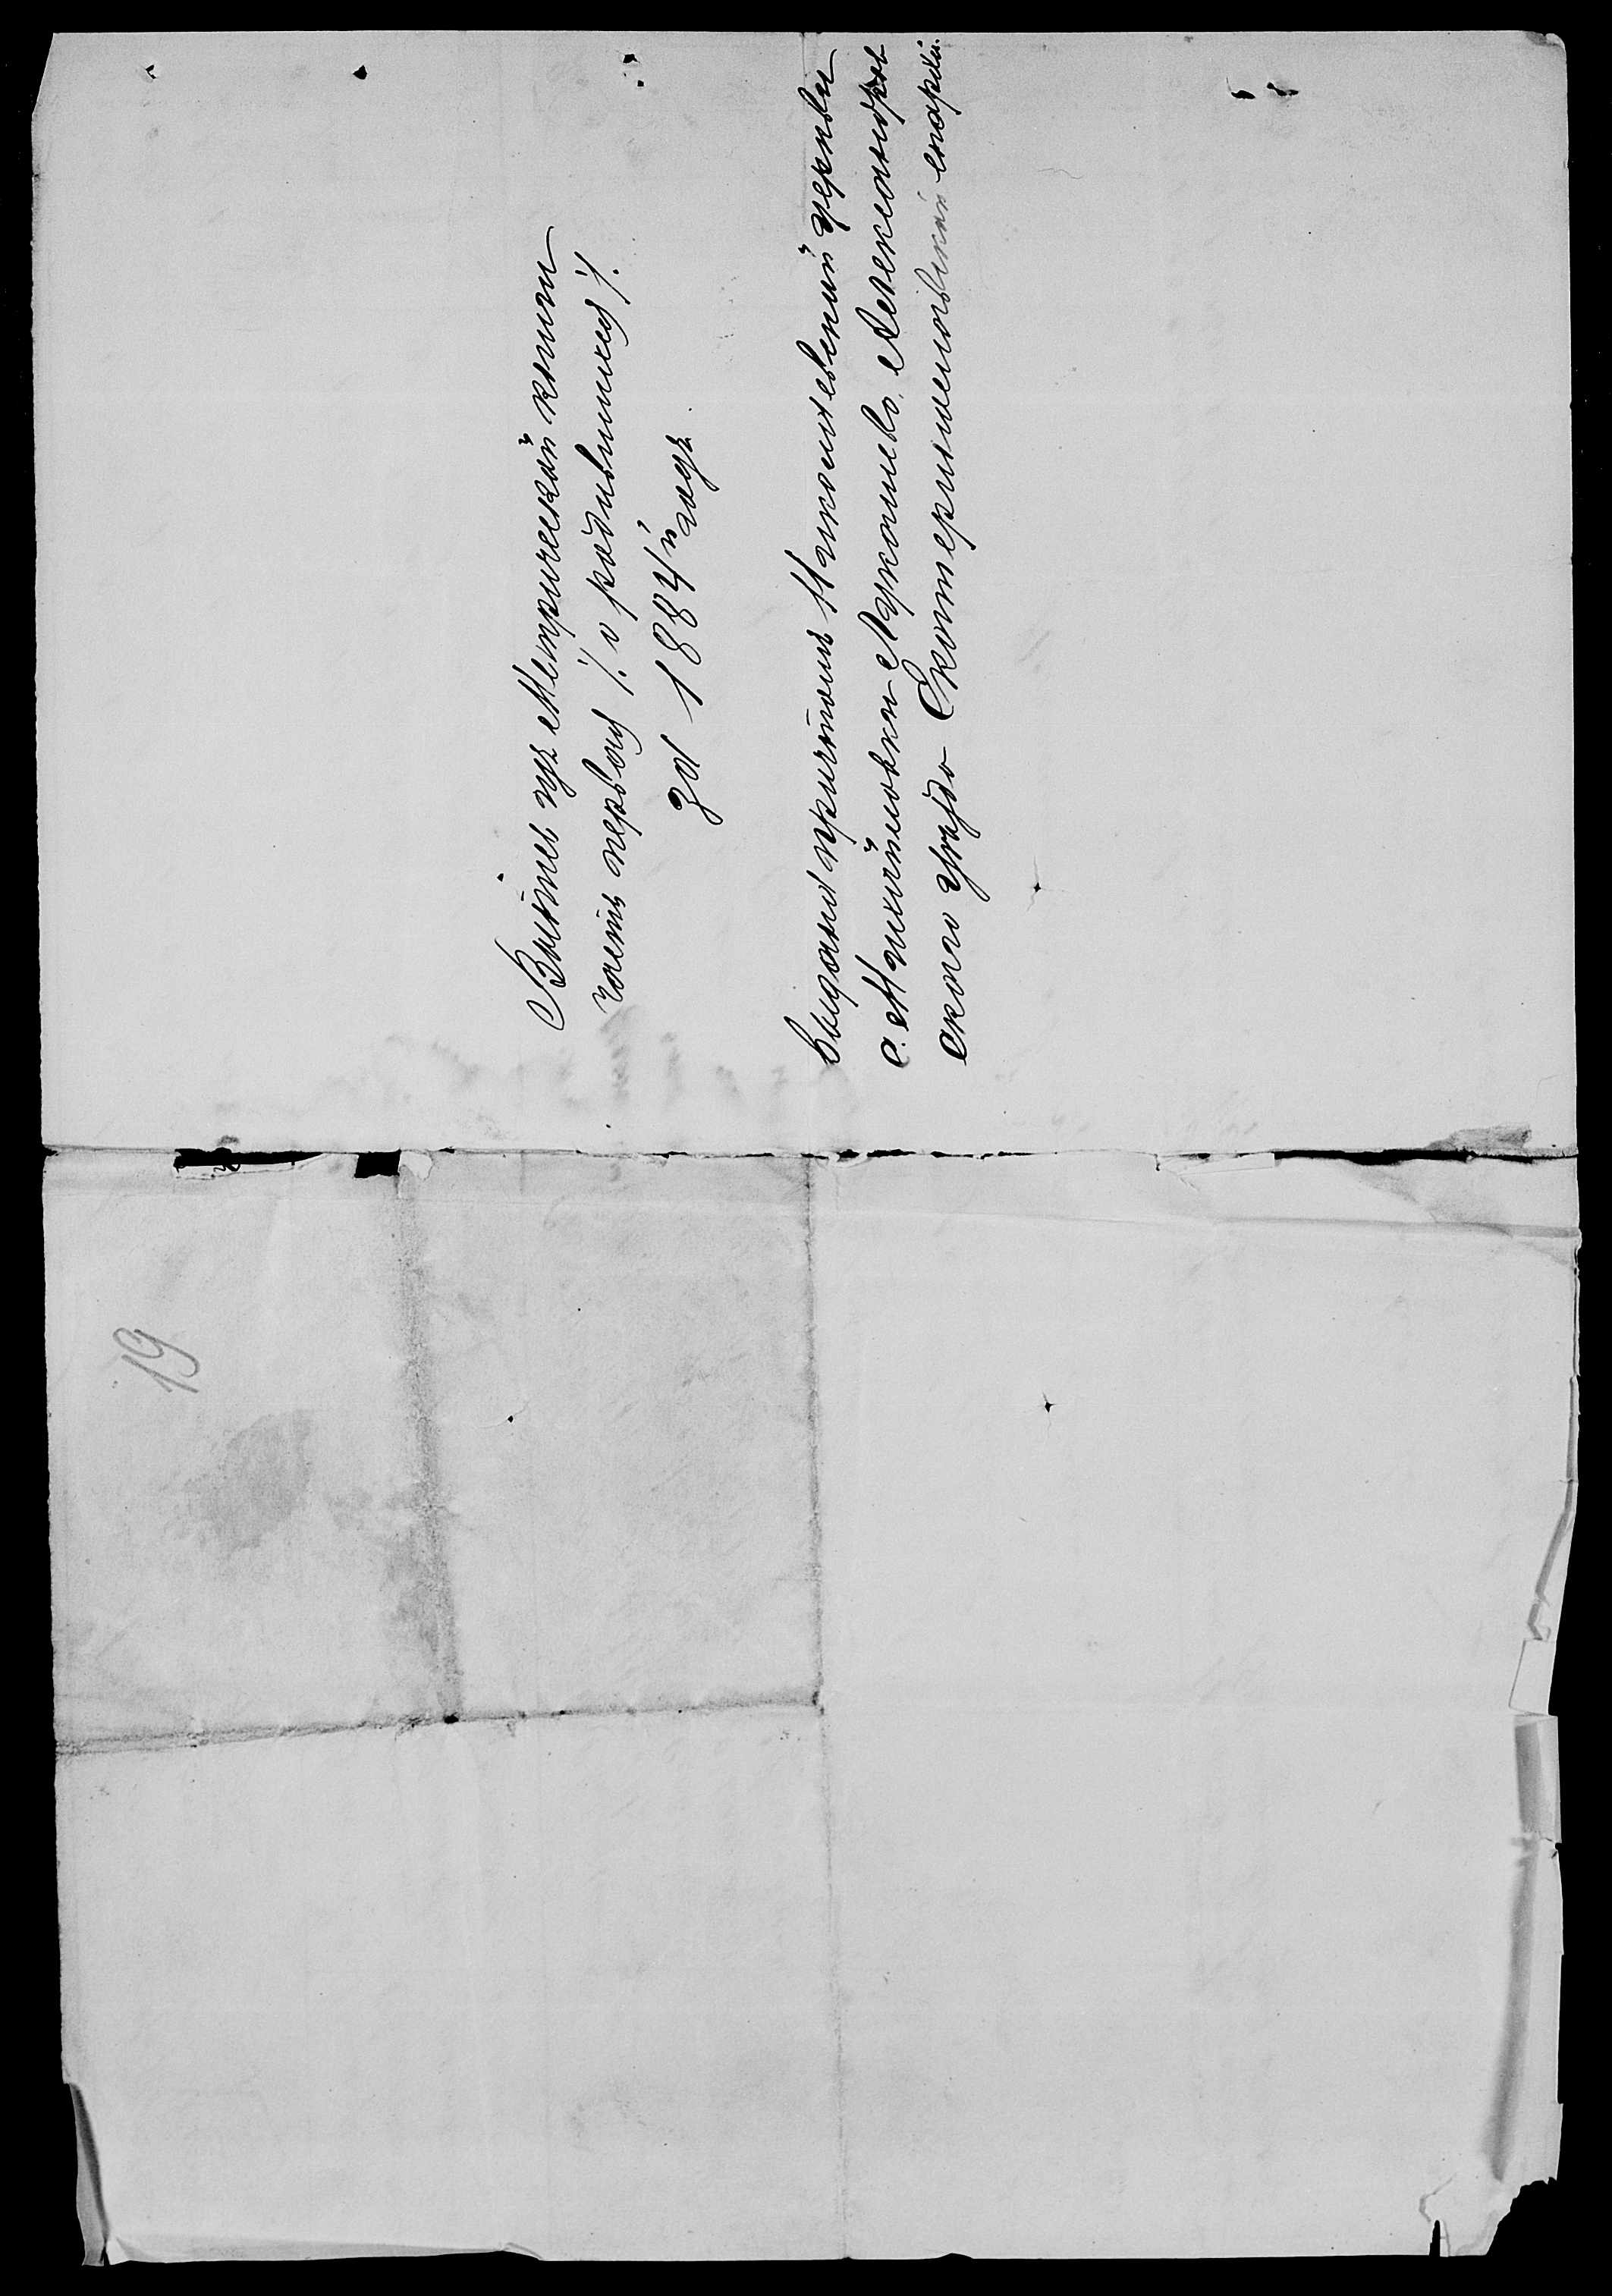 Выпись изъ Метрической книги
часть первая /: о родившихся :/
за 1884й годъ
Выдана причтомъ Николаевской церкви
с. Михайловки-Лукашево, Александров
скаго уѣзда Екатеринославской епархіи.
19